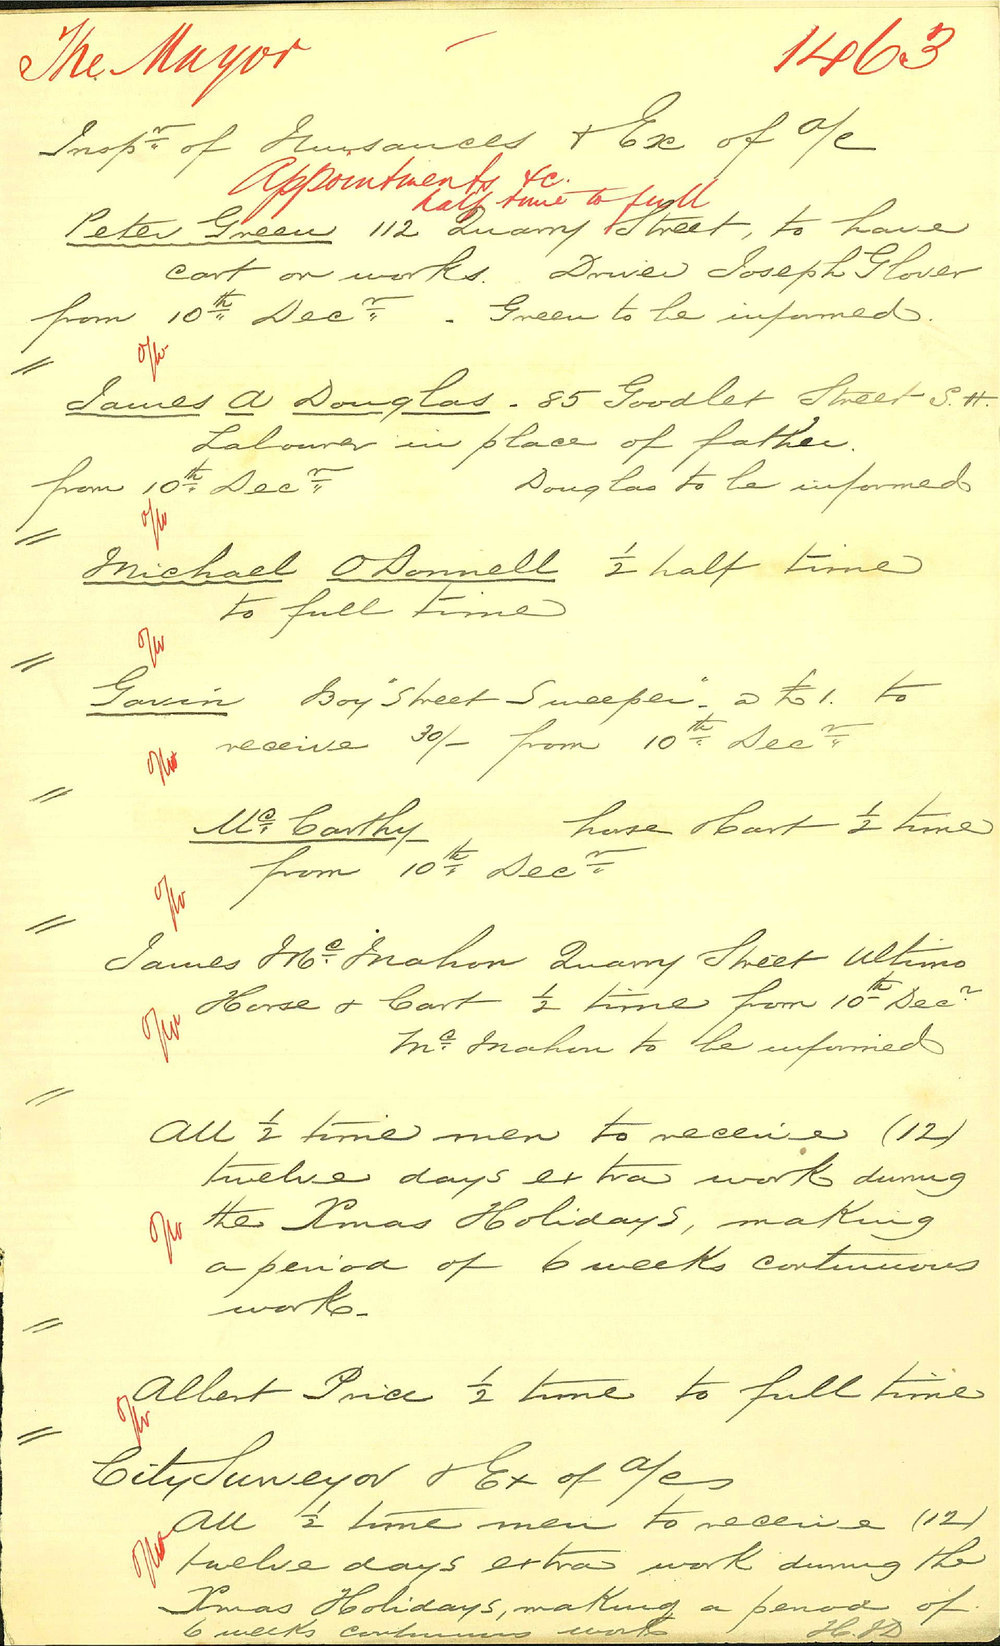 The Mayor 1463
Inspr of Nuisances & Ex of a/c
Appointments &c.
half time to full
Peter Green 112 Quarry Street, to have
cart on works. Driver Joseph Glover
from 10th Decr. Green to be informed.
James A Douglas. 85 Goodlet Street S.H.
Labourer in place of father.
from 10th Decr Douglas to be informed
Michael O'Donnell ½ half time
to full time
Gavin Boy "Street Sweeper" to
receive 30/- from 10th Decr
Mc Carthy horse & Cart ½ time
from 10th Decr
James Mc Mahon Quarry Street Ultimo
Horse & Cart ½ time from 10th Decr
Mc Mahon to be informed
All ½ time men to receive (12)
twelve days extra work during
the Xmas Holidays, making
a period of 6 weeks continuous
work.
Albert Price ½ time to full time
City Surveyor & Ex of a/cs
All ½ time men to receive (12)
twelve days extra work during the
Xmas Holidays, making a period of
6 weeks continuous work